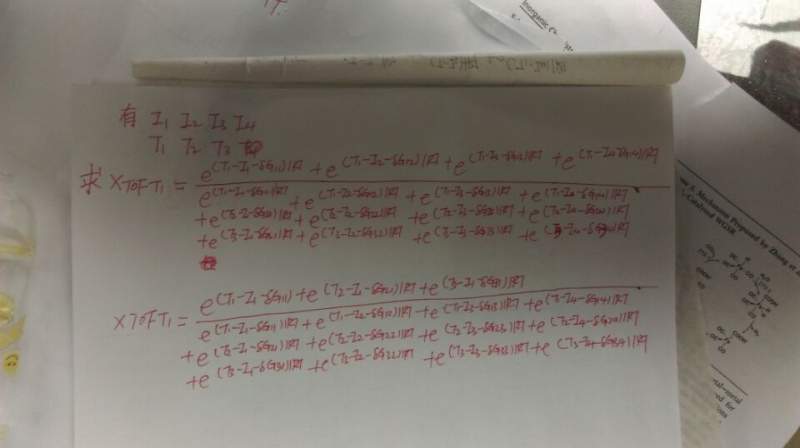 Inorganic
有 I1 I2 I3 I4
T1 T2 T3
求 XTOFT1 = e^(T1-I1-δG11)|RT + e^(T1-I2-δG12)|RT + e^(T1-I3-δG13)|RT + e^(T1-I4-δG14)|RT
e^(T1-I1-δG11)|RT + e^(T1-I2-δG12)|RT + e^(T1-I3-δG13)|RT + e^(T1-I4-δG14)|RT
+ e^(T2-I1-δG21)|RT + e^(T2-I2-δG22)|RT + e^(T2-I3-δG23)|RT + e^(T2-I4-δG24)|RT
+ e^(T3-I1-δG31)|RT + e^(T3-I2-δG32)|RT + e^(T3-I3-δG33)|RT + e^(T3-I4-δG34)|RT
XTOFT1 = e^(T1-I1-δG11) + e^(T2-I1-δG21)|RT + e^(T3-I1-δG31)|RT
e^(T1-I1-δG11)|RT + e^(T1-I2-δG12)|RT + e^(T1-I3-δG13)|RT + e^(T1-I4-δG14)|RT
+ e^(T2-I1-δG21)|RT + e^(T2-I2-δG22)|RT + e^(T2-I3-δG23)|RT + e^(T2-I4-δG24)|RT
+ e^(T3-I1-δG31)|RT + e^(T3-I2-δG32)|RT + e^(T3-I3-δG33)|RT + e^(T3-I4-δG34)|RT
A Mechanism Proposed by Zhang et
Catalyzed WGSR